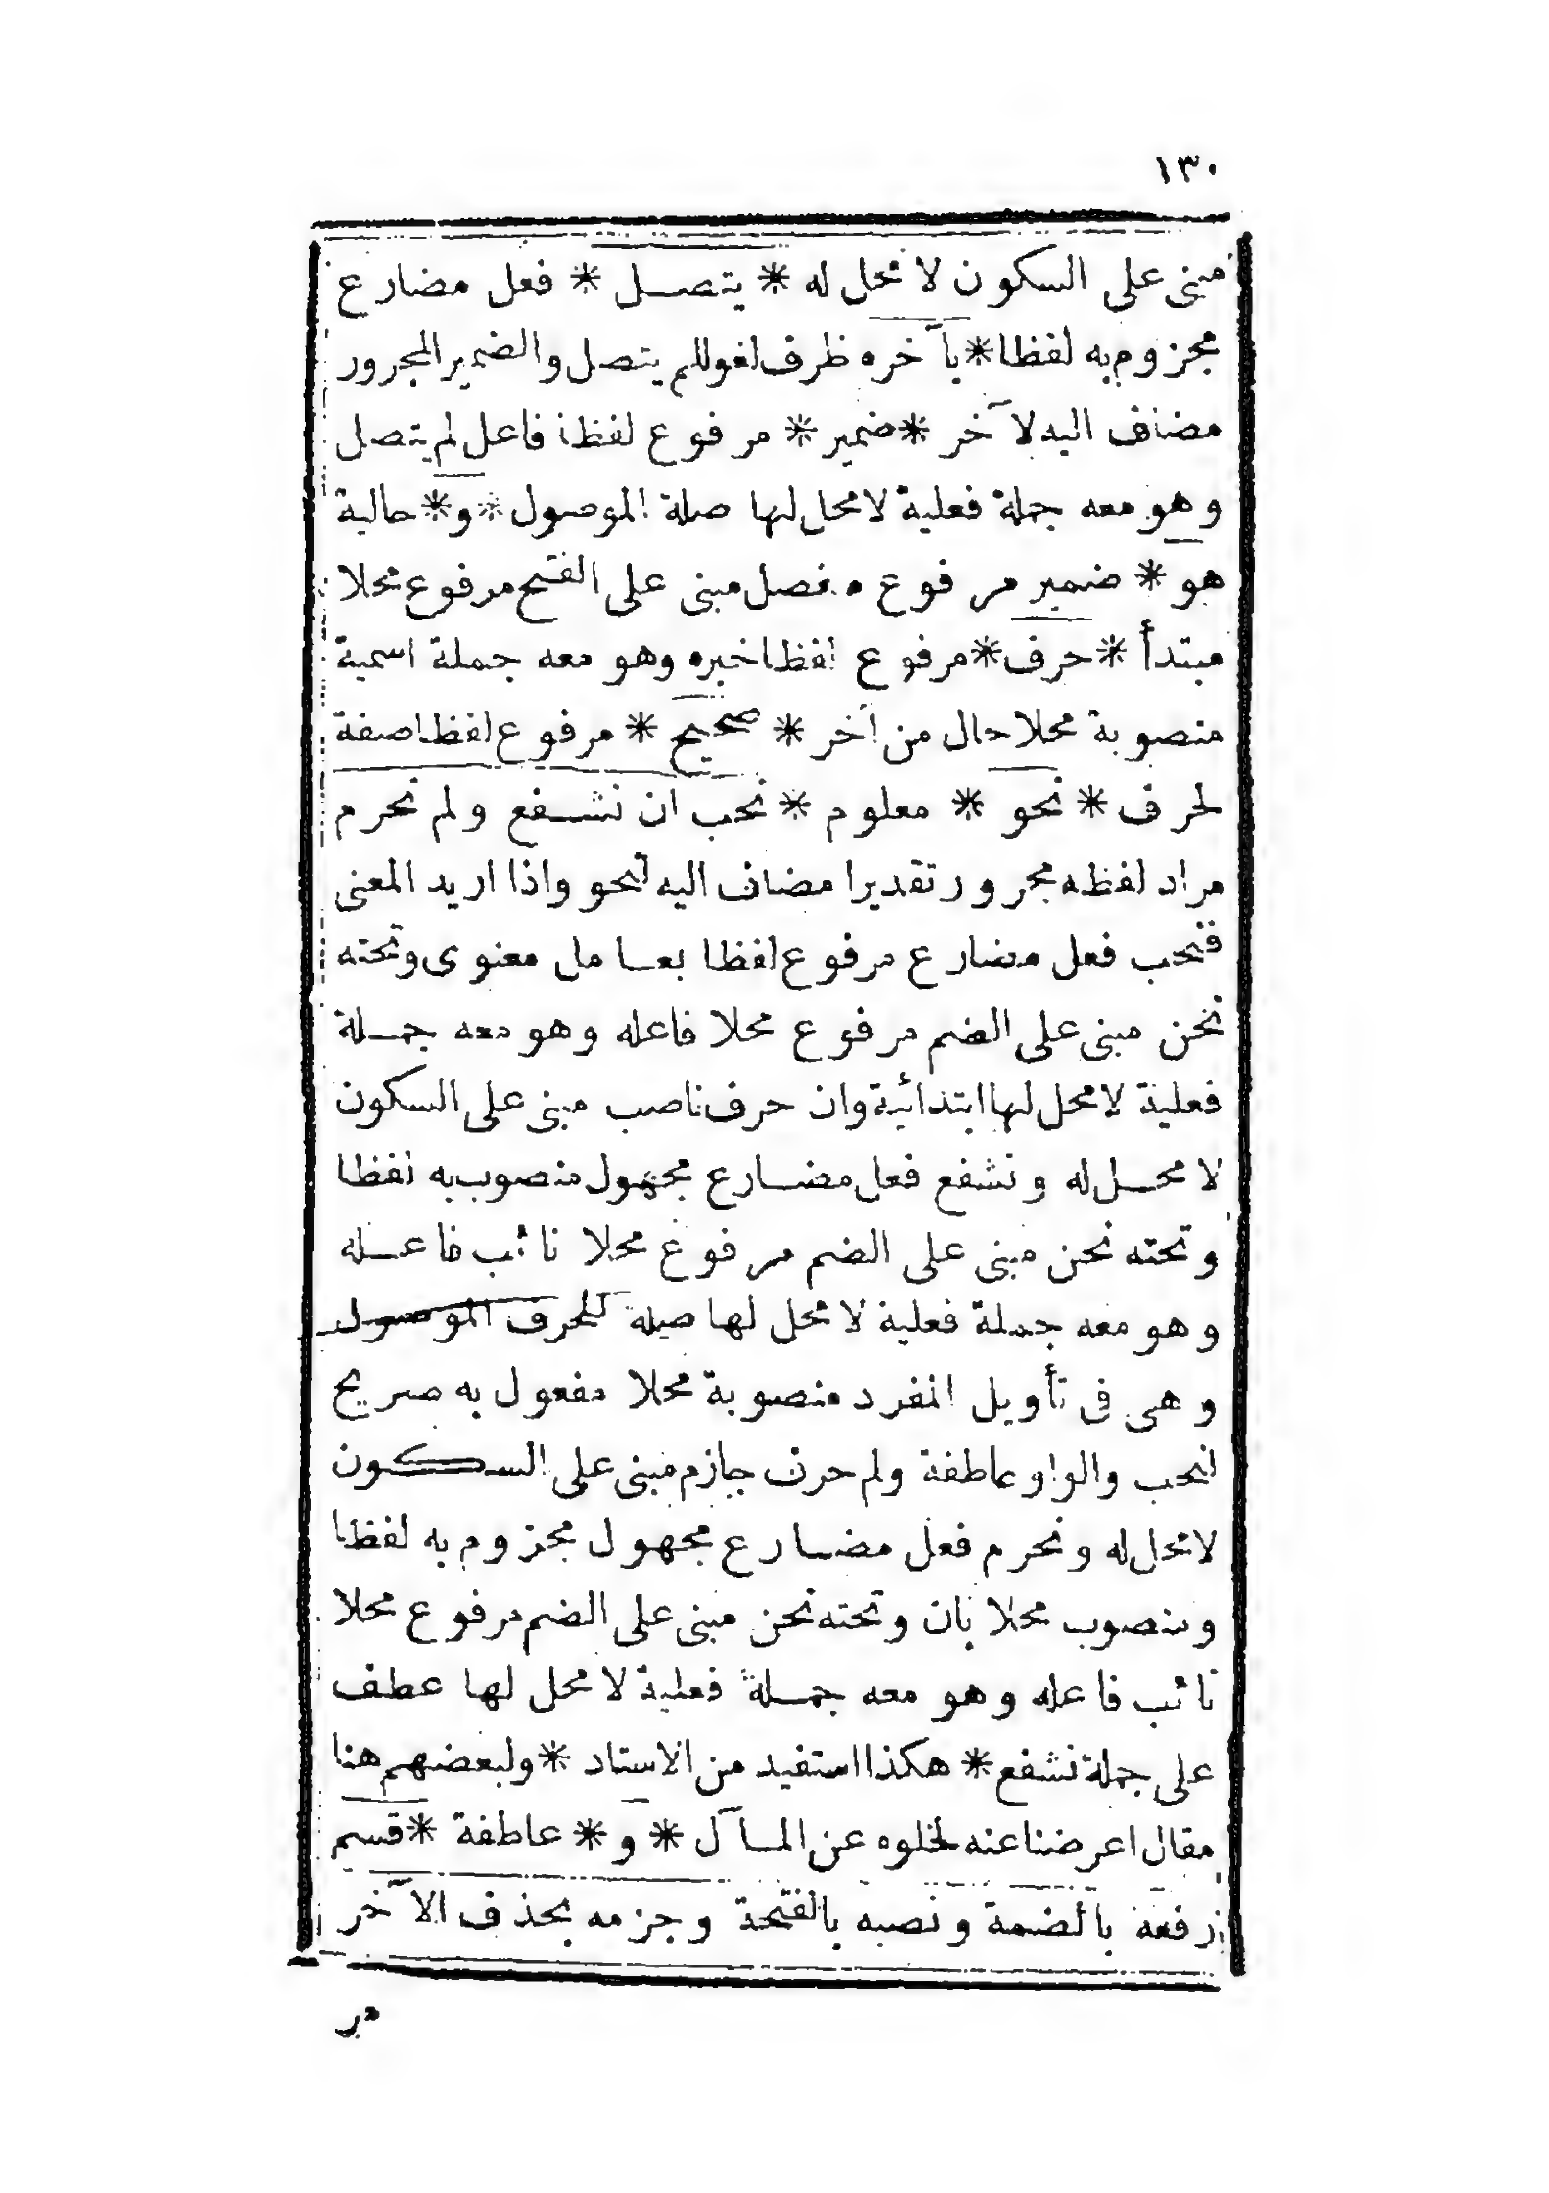 ١٣٠
مبنى على السكون لا محل له * يتصل * فعل مضارع
مجزوم به لفظا * بآخره ظرف لغو للم يتصل والضمير المجرور
مضاف اليه لآخر * ضمير * مرفوع لفظا فاعل لم يتصل
وهو معه جملة فعلية لا محل لها صلة الموصول * و * حالية
هو * ضمير مرفوع منفصل مبنى على الفتح مرفوع محلا
مبتدأ * حرف * مرفوع لفظا خبره وهو معه جملة اسمية
منصوبة محلا حال من آخر * صحيح * مرفوع لفظا صفة
لحرف * نحو * معلوم * نحب ان نشفع ولم نحرم
مراد لفظه مجرور تقديرا مضاف اليه لنحو واذا اريد المعنى
فنحب فعل مضارع مرفوع لفظا بعامل معنوى وتحته
نحن مبنى على الضم مرفوع محلا فاعله وهو معه جملة
فعلية لا محل لها ابتدائية وان حرف ناصب مبنى على السكون
لا محل له ونشفع فعل مضارع مجهول منصوب به لفظا
وتحته نحن مبنى على الضم مرفوع محلا نائب فاعله
وهو معه جملة فعلية لا محل لها صلة للحرف الموصول
وهى فى تأويل المفرد منصوبة محلا مفعول به صريح
لنحب والواو عاطفة ولم حرف جازم مبنى على السكون
لا محل له ونحرم فعل مضارع مجهول مجزوم به لفظا
ومنصوب محلا بان وتحته نحن مبنى على الضم مرفوع محلا
نائب فاعله وهو معه جملة فعلية لا محل لها عطف
على جملة نشفع * هكذا استفيد من الاستاد * ولبعضهم هنا
مقال اعرضنا عنه لخلوه عن المآل * و * عاطفة * قسم
رفعه بالضمة ونصبه بالفتحة وجزمه بحذف الآخر